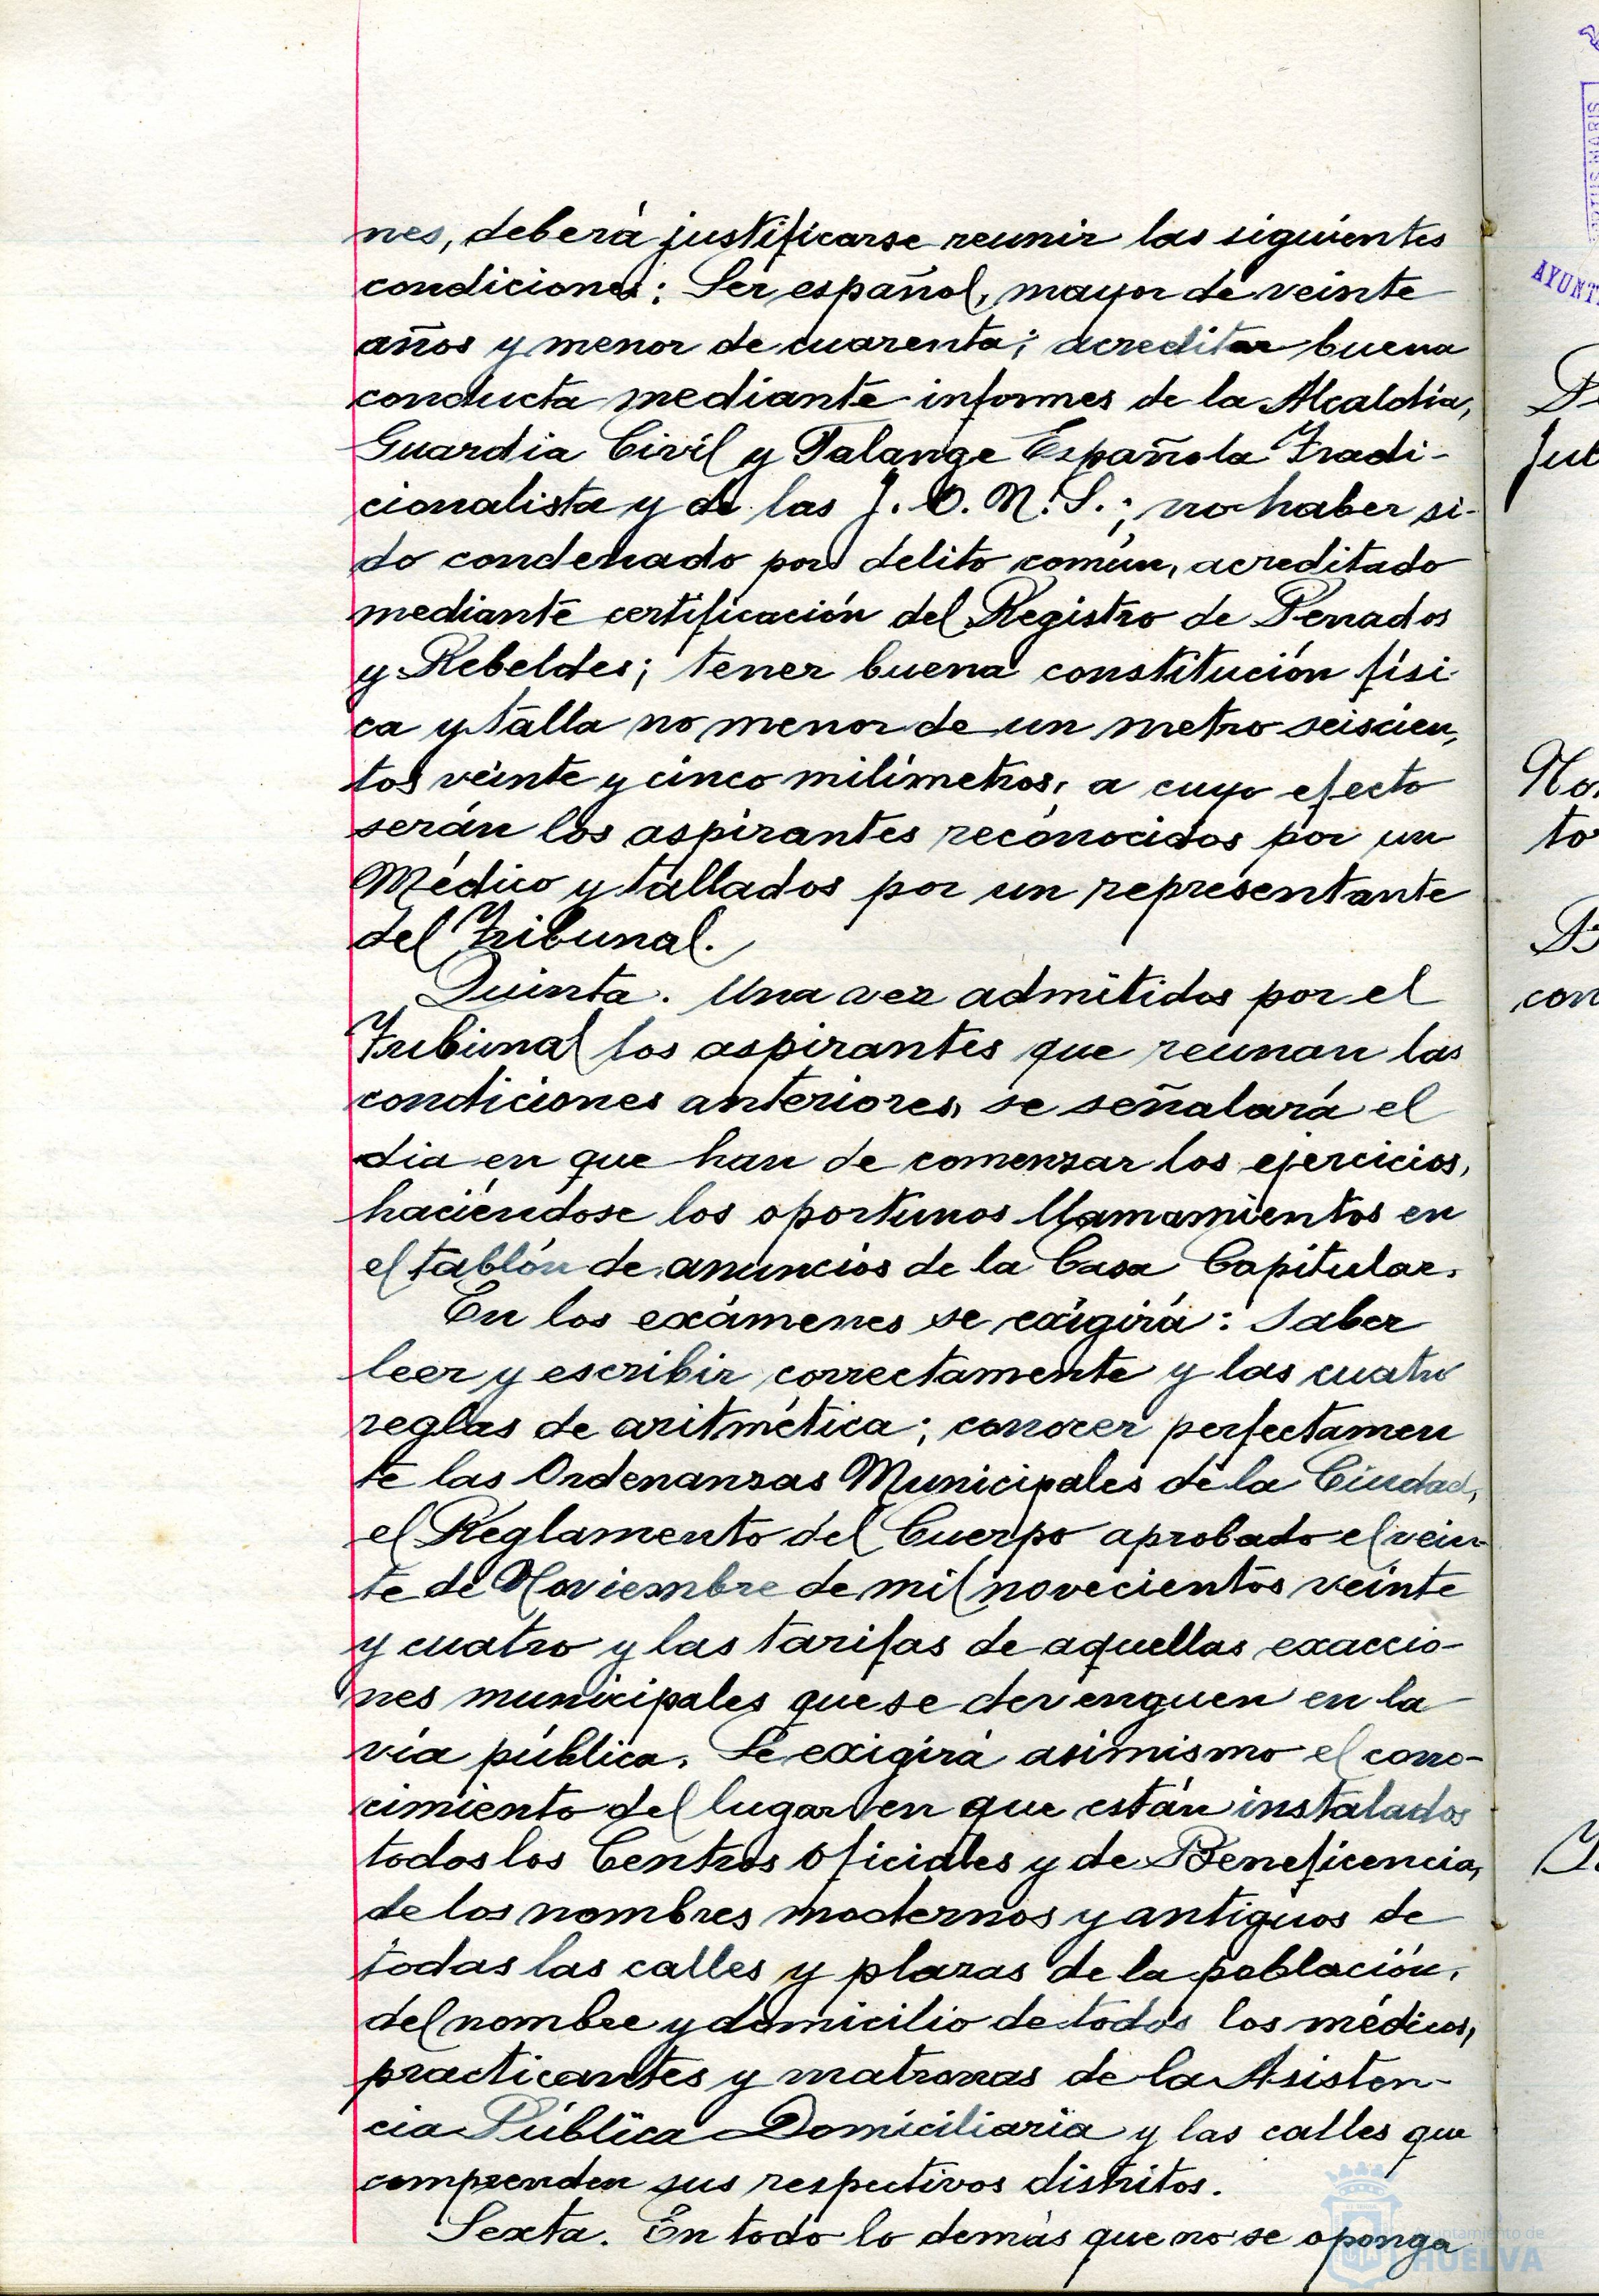 nes, deberá justificarse reunir las siguientes
condiciones: Ser español, mayor de veinte
años y menor de cuarenta; acreditar buena
conducta mediante informes de la Alcaldía,
Guardia Civil y Falange Española Tradi-
cionalista y de las J. O. N. S.; no haber si-
do condenado por delito común, acreditado
mediante certificación del Registro de Penados
y Rebeldes; tener buena constitución fisi-
ca y talla no menor de un metro seiscien-
tos veinte y cinco milímetros, a cuyo efecto
serán los aspirantes reconocidos por un
Médico y tallados por un representante
del Tribunal.
Quinta. Una vez admitidos por el
Tribunal los aspirantes que reunan las
condiciones anteriores, se señalará el
dia en que han de comenzar los ejercicios,
haciéndose los oportunos llamamientos en
el tablón de anuncios de la Casa Capitular.
En los exámenes se exigirá: Saber
leer y escribir correctamente y las cuatro
reglas de aritmética; conocer perfectamen
te las Ordenanzas Municipales de la Ciudad,
el Reglamento del Cuerpo aprobado el vein-
te de Noviembre de mil novecientos veinte
y cuatro y las tarifas de aquellas exaccio-
nes municipales que se devenguen en la
vía pública. Se exigirá asimismo el cono-
cimiento del lugar en que están instalados
todos los Centros Oficiales y de Beneficencia,
de los nombres modernos y antiguos de
todas las calles y plazas de la población,
del nombre y domicilio de todos los médicos,
practicantes y matronas de la Asisten-
cia Pública Domiciliaria y las calles que
comprenden sus respectivos distritos.
Sexta. En todo lo demás que no se oponga
Ayuntamiento de
HUELVA